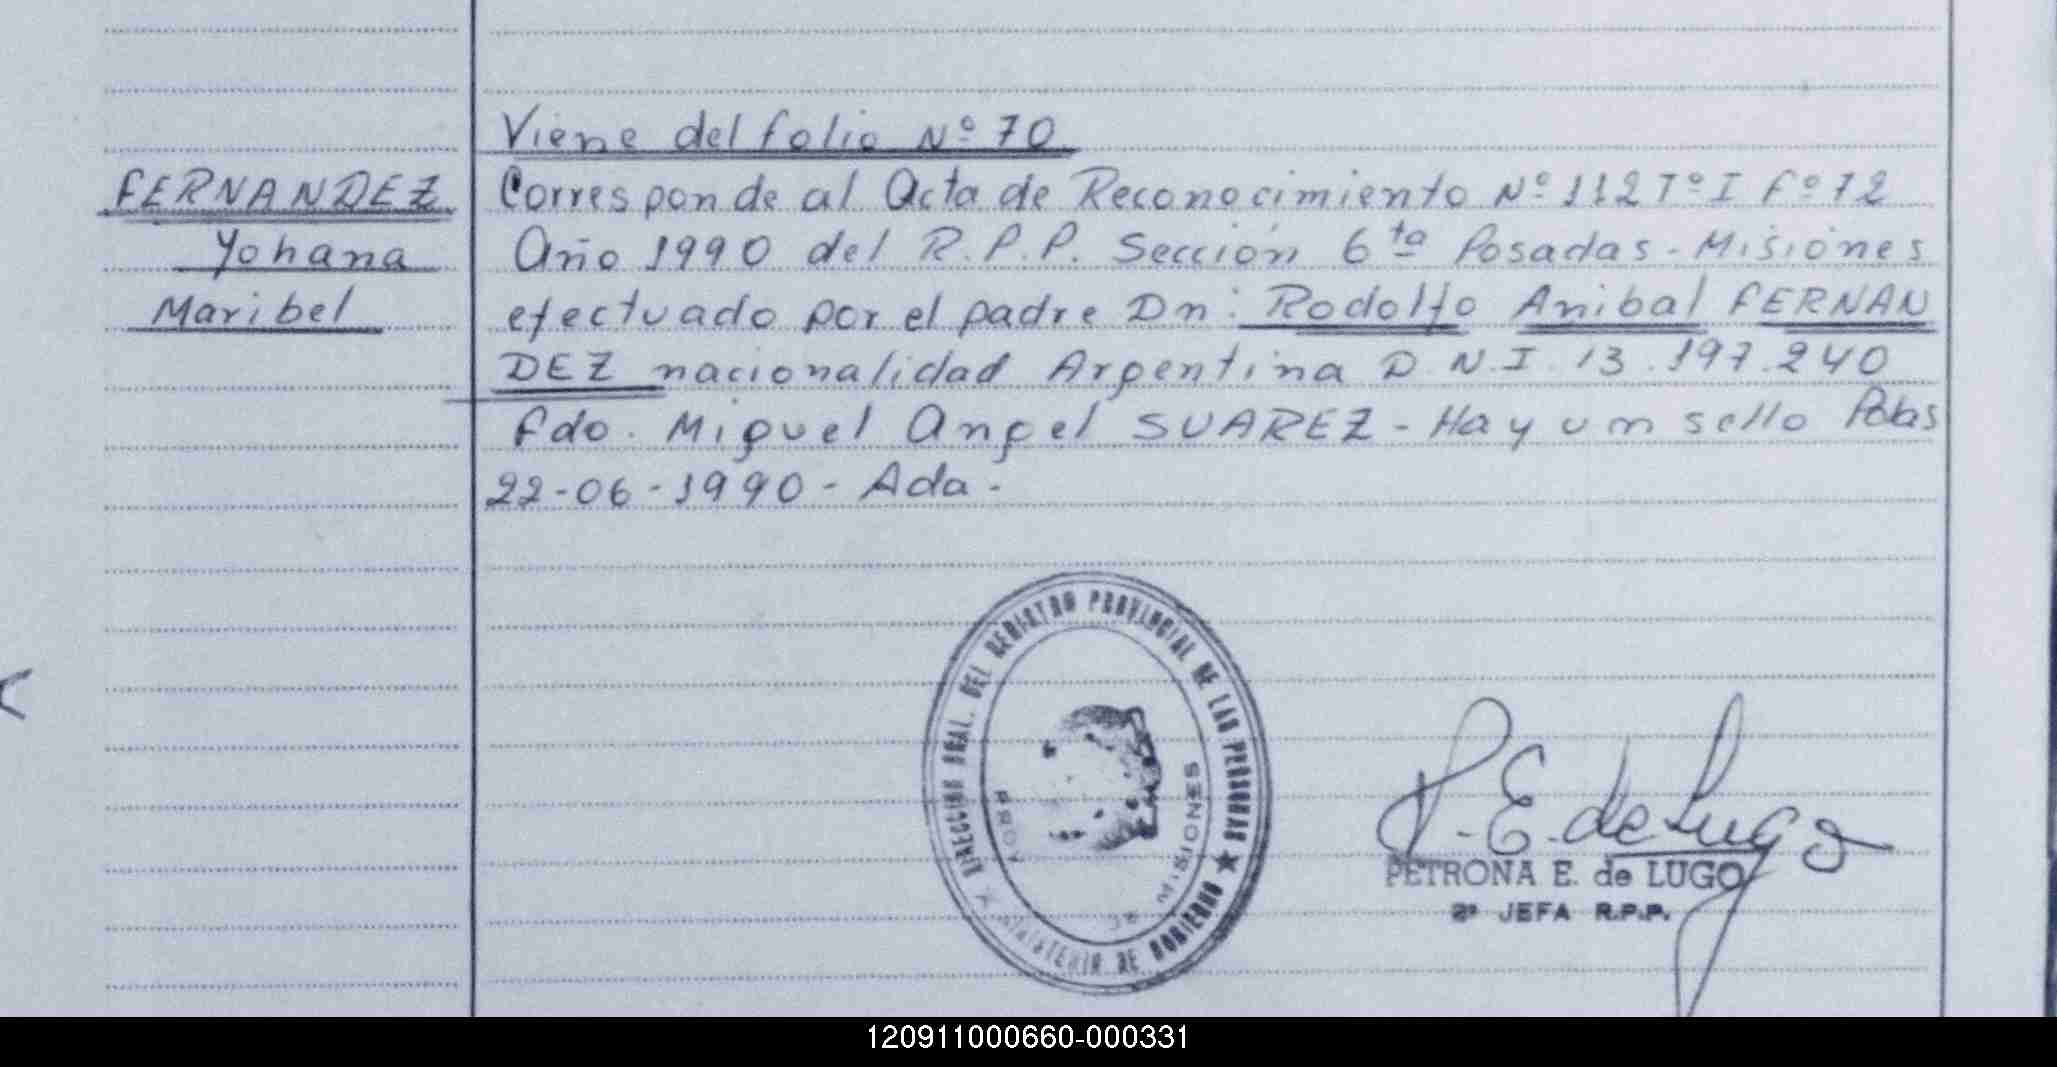 Viene del folio Nº 70
FERNANDEZ
Yohana
Maribel
Corresponde al Acta de Reconocimiento Nº 112 Tº I Fº 72
Año 1990 del R.P.P. Sección 6ta Posadas - Misiones
efectuado por el padre Dn: Rodolfo Anibal FERNAN
DEZ nacionalidad Argentina D.N.I. 13.197.240
Fdo. Miguel Angel SUAREZ - Hay un sello Pdas
22-06-1990 - Ada -
DIRECCION GRAL. DEL REGISTRO PROVINCIAL DE LAS PERSONAS
MINISTERIO DE GOBIERNO
PROV. DE MISIONES
P. E. de Lugo
PETRONA E. de LUGO
2ª JEFA R.P.P.
120911000660-000331